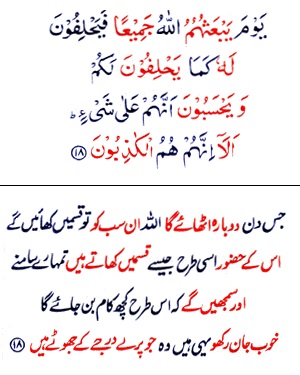 يَوْمَ يَبْعَثُهُمُ اللّٰهُ جَمِيْعًا فَيَحْلِفُوْنَ
لَهٗ كَمَا يَحْلِفُوْنَ لَكُمْ
وَ يَحْسَبُوْنَ اَنَّهُمْ عَلٰى شَىْءٍ ؕ
اَلَاۤ اِنَّهُمْ هُمُ الْكٰذِبُوْنَ ﴿۱۸﴾
جس دن دوبارہ اٹھائے گا اللہ ان سب کو تو قسمیں کھائیں گے
اس کے حضور اسی طرح جیسے قسمیں کھاتے ہیں تمہارے سامنے
اور سمجھیں گے کہ اس طرح کچھ کام بن جائے گا
خوب جان رکھو یہی ہیں وہ جو پرلے درجے کے جھوٹے ہیں ﴿۱۸﴾